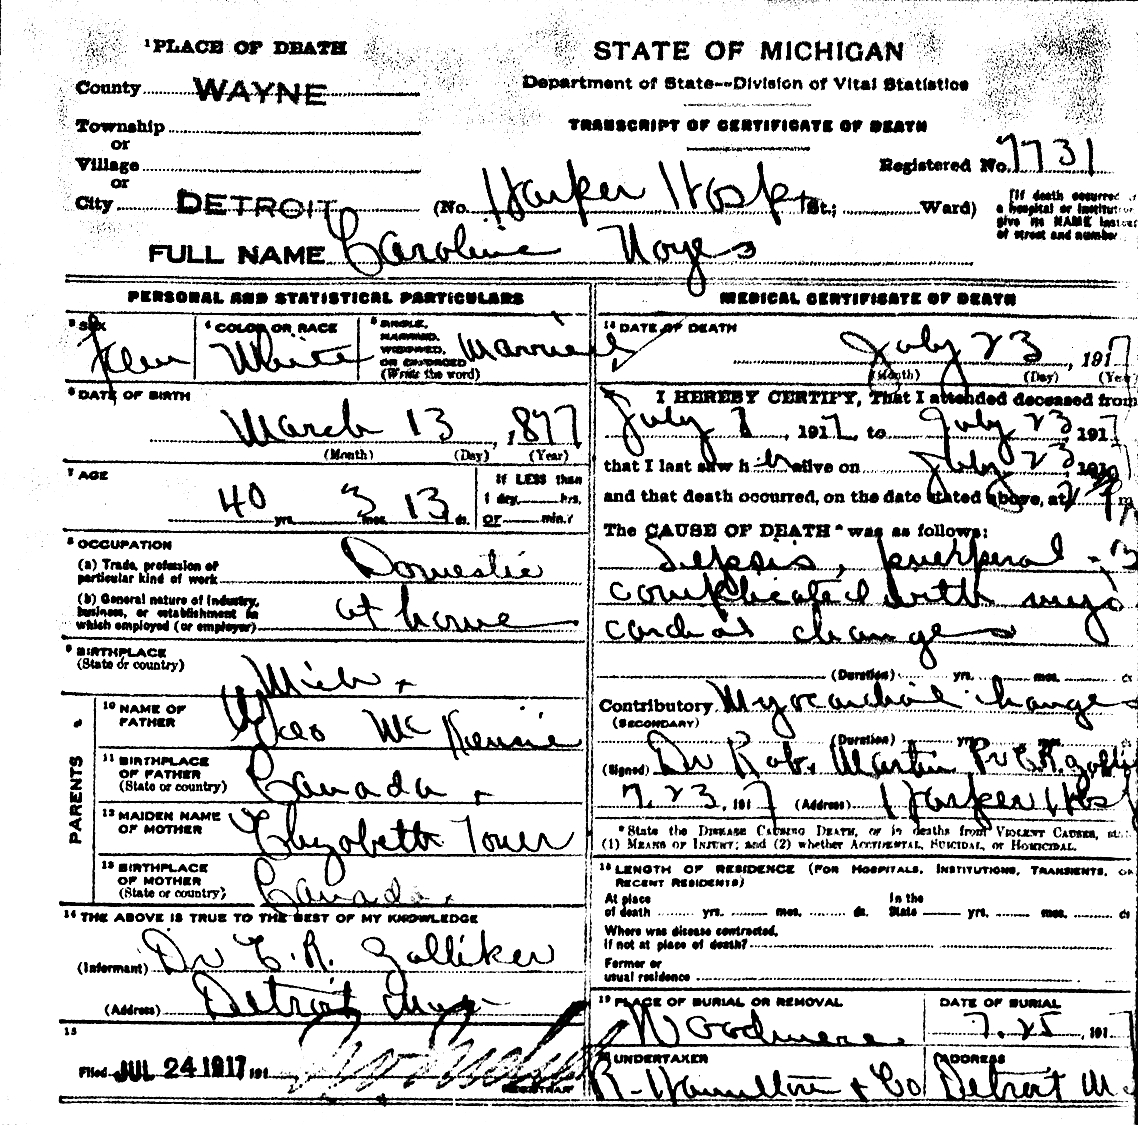 1 PLACE OF DEATH
County WAYNE
Township
or
Village
or
City DETROIT
STATE OF MICHIGAN
Department of State--Division of Vital Statistics
TRANSCRIPT OF CERTIFICATE OF DEATH
Registered No. 7731
(No. Harper Hosp. St.; Ward)
[If death occurred
a hospital or institution
give its NAME
of street and number
FULL NAME Caroline Noyes
PERSONAL AND STATISTICAL PARTICULARS
3 SEX Fem
4 COLOR OR RACE White
5 SINGLE, MARRIED, WIDOWED, OR DIVORCED (Write the word) Married
6 DATE OF BIRTH
March 13, 1877
(Month) (Day) (Year)
7 AGE
40 yrs. 3 mos. 13 ds.
If LESS than
1 day, hrs.
or min.?
8 OCCUPATION
(a) Trade, profession or
particular kind of work Domestic
(b) General nature of industry,
business, or establishment in
which employed (or employer) at home
9 BIRTHPLACE
(State or country) Mich.
PARENTS
10 NAME OF
FATHER Geo McKensie
11 BIRTHPLACE
OF FATHER
(State or country) Canada
12 MAIDEN NAME
OF MOTHER Elizabeth Tower
13 BIRTHPLACE
OF MOTHER
(State or country) Canada
14 THE ABOVE IS TRUE TO THE BEST OF MY KNOWLEDGE
(Informant) Dr E. R. Zolliker
(Address) Detroit
15
Filed JUL 24 1917 191
REGISTRAR
MEDICAL CERTIFICATE OF DEATH
16 DATE OF DEATH
July 23, 1917
(Month) (Day) (Year)
I HEREBY CERTIFY, That I attended deceased from
July 1, 1917, to July 23, 1917
that I last saw her alive on July 23, 191
and that death occurred, on the date stated above, at 2 P m
The CAUSE OF DEATH* was as follows:
Sepsis, puerperal -
complicated with myo
cardial changes
(Duration) yrs. mos. ds
Contributory Myocardial changes
(SECONDARY)
(Duration) yrs. mos.
(Signed) Dr Rob. Martin Pr E.R. Zolli
7.23, 1917 (Address) Harper Hosp
*State the DISEASE CAUSING DEATH, or in deaths from VIOLENT CAUSES, state
(1) MEANS OF INJURY; and (2) whether ACCIDENTAL, SUICIDAL, OR HOMICIDAL.
18 LENGTH OF RESIDENCE (FOR HOSPITALS, INSTITUTIONS, TRANSIENTS, OR
RECENT RESIDENTS)
At place
of death yrs. mos. ds. In the
State yrs. mos. ds
Where was disease contracted,
if not at place of death?
Former or
usual residence
19 PLACE OF BURIAL OR REMOVAL
Woodmere
DATE OF BURIAL
7.25, 191
UNDERTAKER
R. Hamilton & Co
ADDRESS
Detroit M